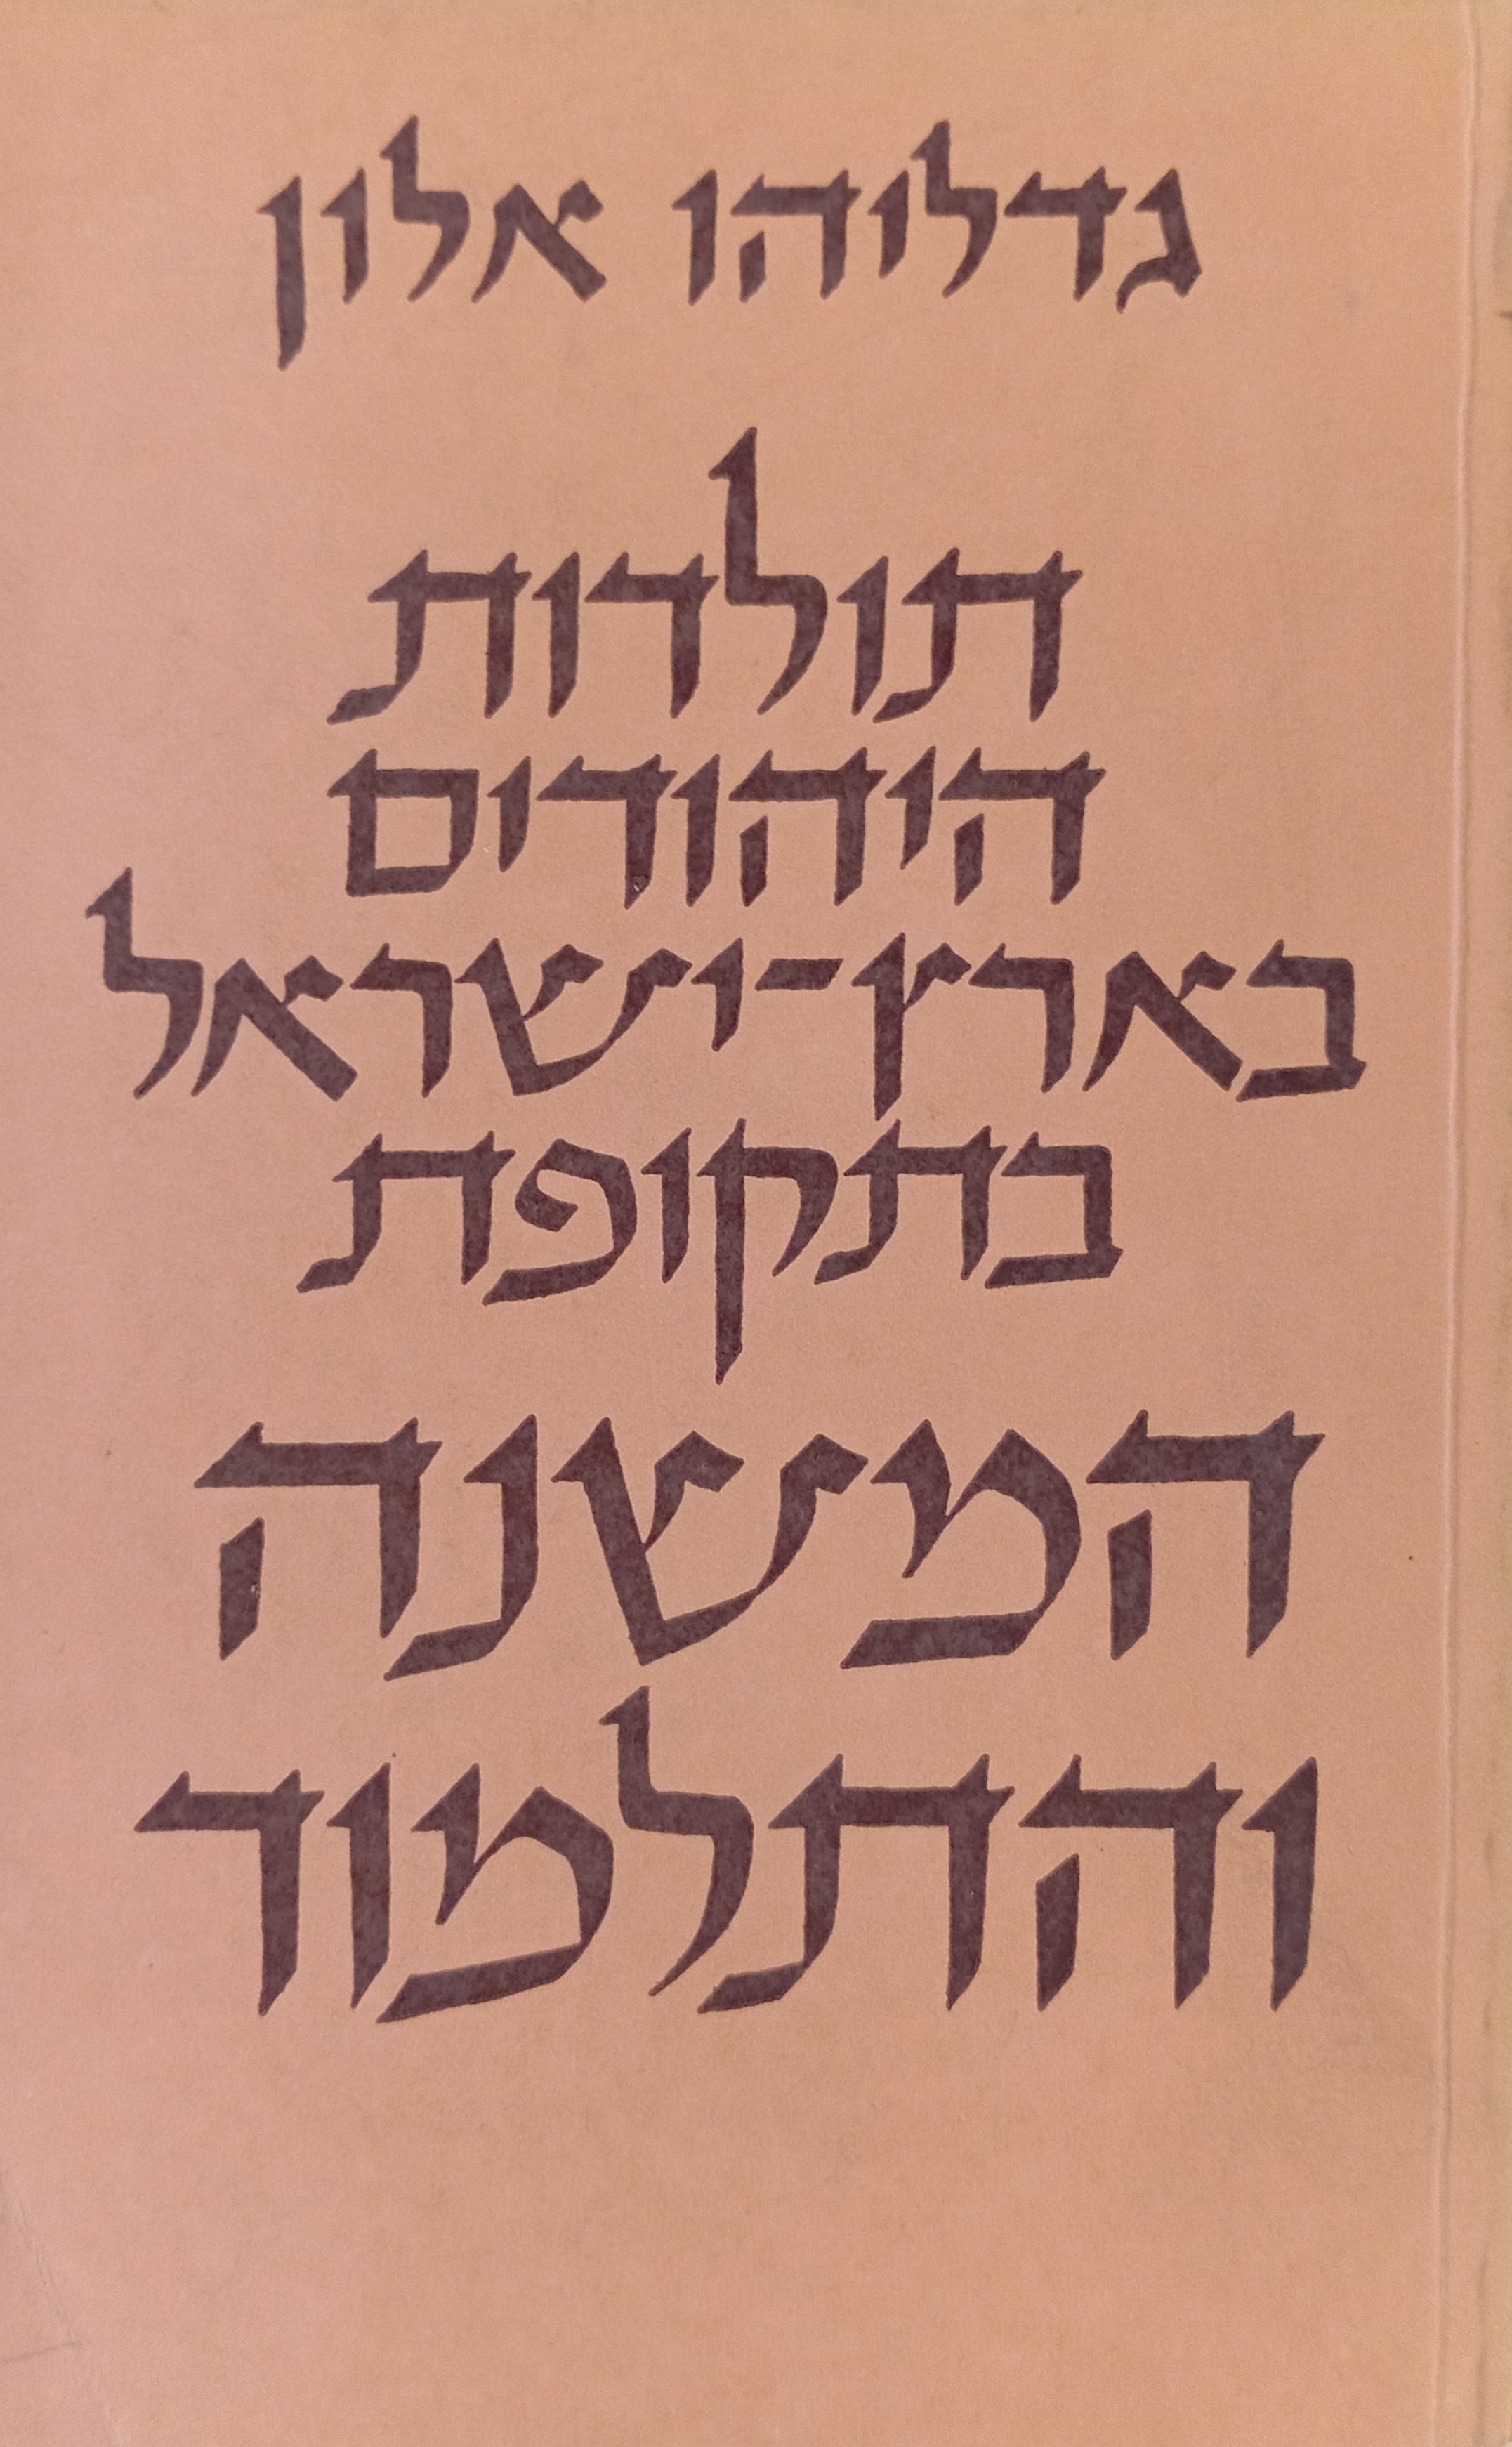 גדליהו אלון
תולדות
היהודים
בארץ-ישראל
בתקופת
המשנה
והתלמוד